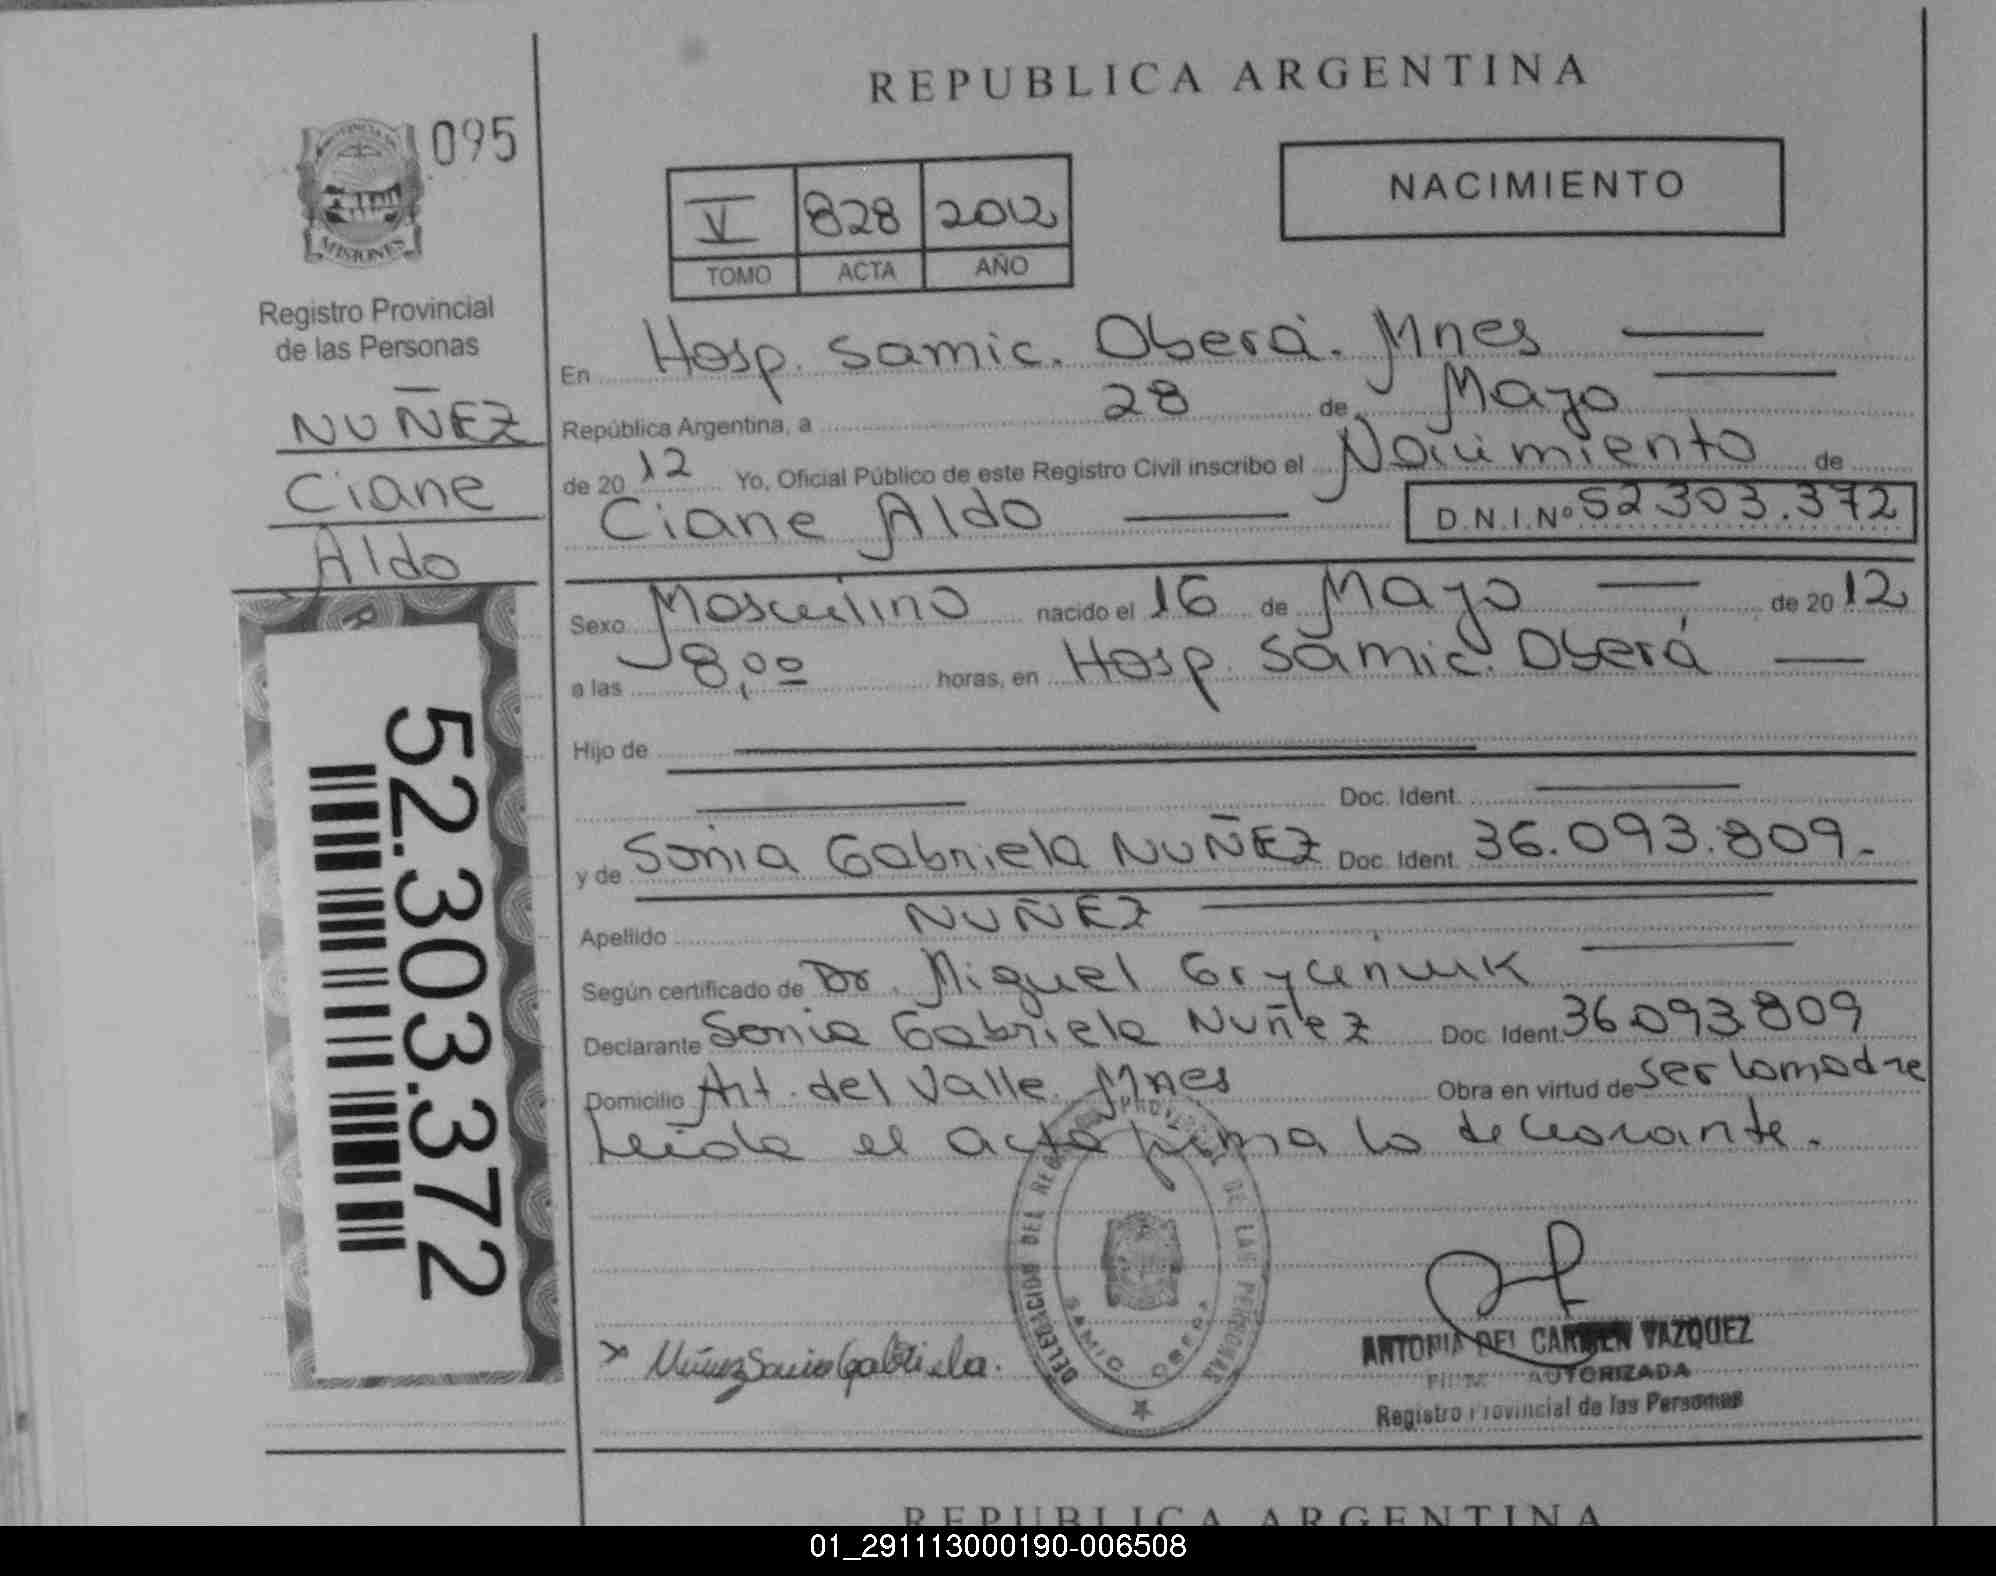 REPUBLICA ARGENTINA
095
NACIMIENTO
V 828 2012
TOMO ACTA AÑO
MISIONES
Registro Provincial
de las Personas
NUÑEZ
Ciane
Aldo
52.303.372
En Hosp. Samic. Oberá. Mnes
República Argentina, a 28 de Mayo
de 2012 Yo, Oficial Público de este Registro Civil inscribo el Nacimiento de
Ciane Aldo D.N.I.Nº 52.303.372
Sexo Masculino nacido el 16 de Mayo de 2012
a las 8,00 horas, en Hosp. Samic. Oberá
Hijo de
Doc. Ident.
y de Sonia Gabriela NUÑEZ Doc. Ident. 36.093.809.-
Apellido NUÑEZ
Según certificado de Dr. Miguel
Declarante Sonia Gabriela Nuñez Doc. Ident. 36.093.809
Domicilio Art. del Valle. Mnes Obra en virtud de ser la madre
Leída el acta firma la declarante.
DELEGACION DEL REGISTRO PROVINCIAL DE LAS PERSONAS
SAMIC OBERA
Nuñez Sonia Gabriela.
ANTONIA DEL CARMEN VAZQUEZ
FIRMA AUTORIZADA
Registro Provincial de las Personas
REPUBLICA ARGENTINA
01_291113000190-006508